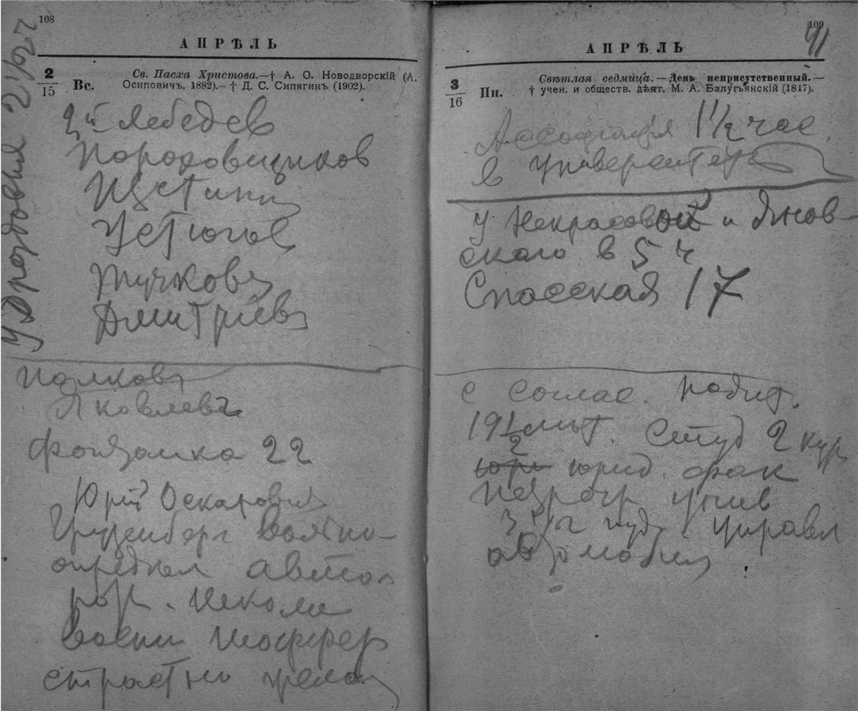 108
АПРѢЛЬ
2/15 Вс. Св. Пасха Христова.—† А. О. Новодворскій (А. Осиповичъ, 1882).—† Д. С. Сипягинъ (1902).
У Дроздовыя 2 1/2 ч
Лебедев
Пороховщиков
Щетини
Устюгов
Жучковъ
Дмитріевъ
Полковъ
Яковлевъ
Фонтанка 22
Юрій Оскарович
Грузенберг вольно-
определ автом
рот. Школы
воен шоффер
страстно
109
41
АПРѢЛЬ
3/16 Пн. Свѣтлая седмица.—День неприсутственный.—† учен. и обществ. дѣят. М. А. Балугьянскій (1817).
Ассоціація 1 1/2 час
в Университетѣ
У Некрасовой и Янов-
скаго в 5 ч
Спасская 17
с соглас. родит.
19 1/2 лѣт. Студ 2 кур
юрид. фак
Петрогр унив
3 1/2 управл
автомобил